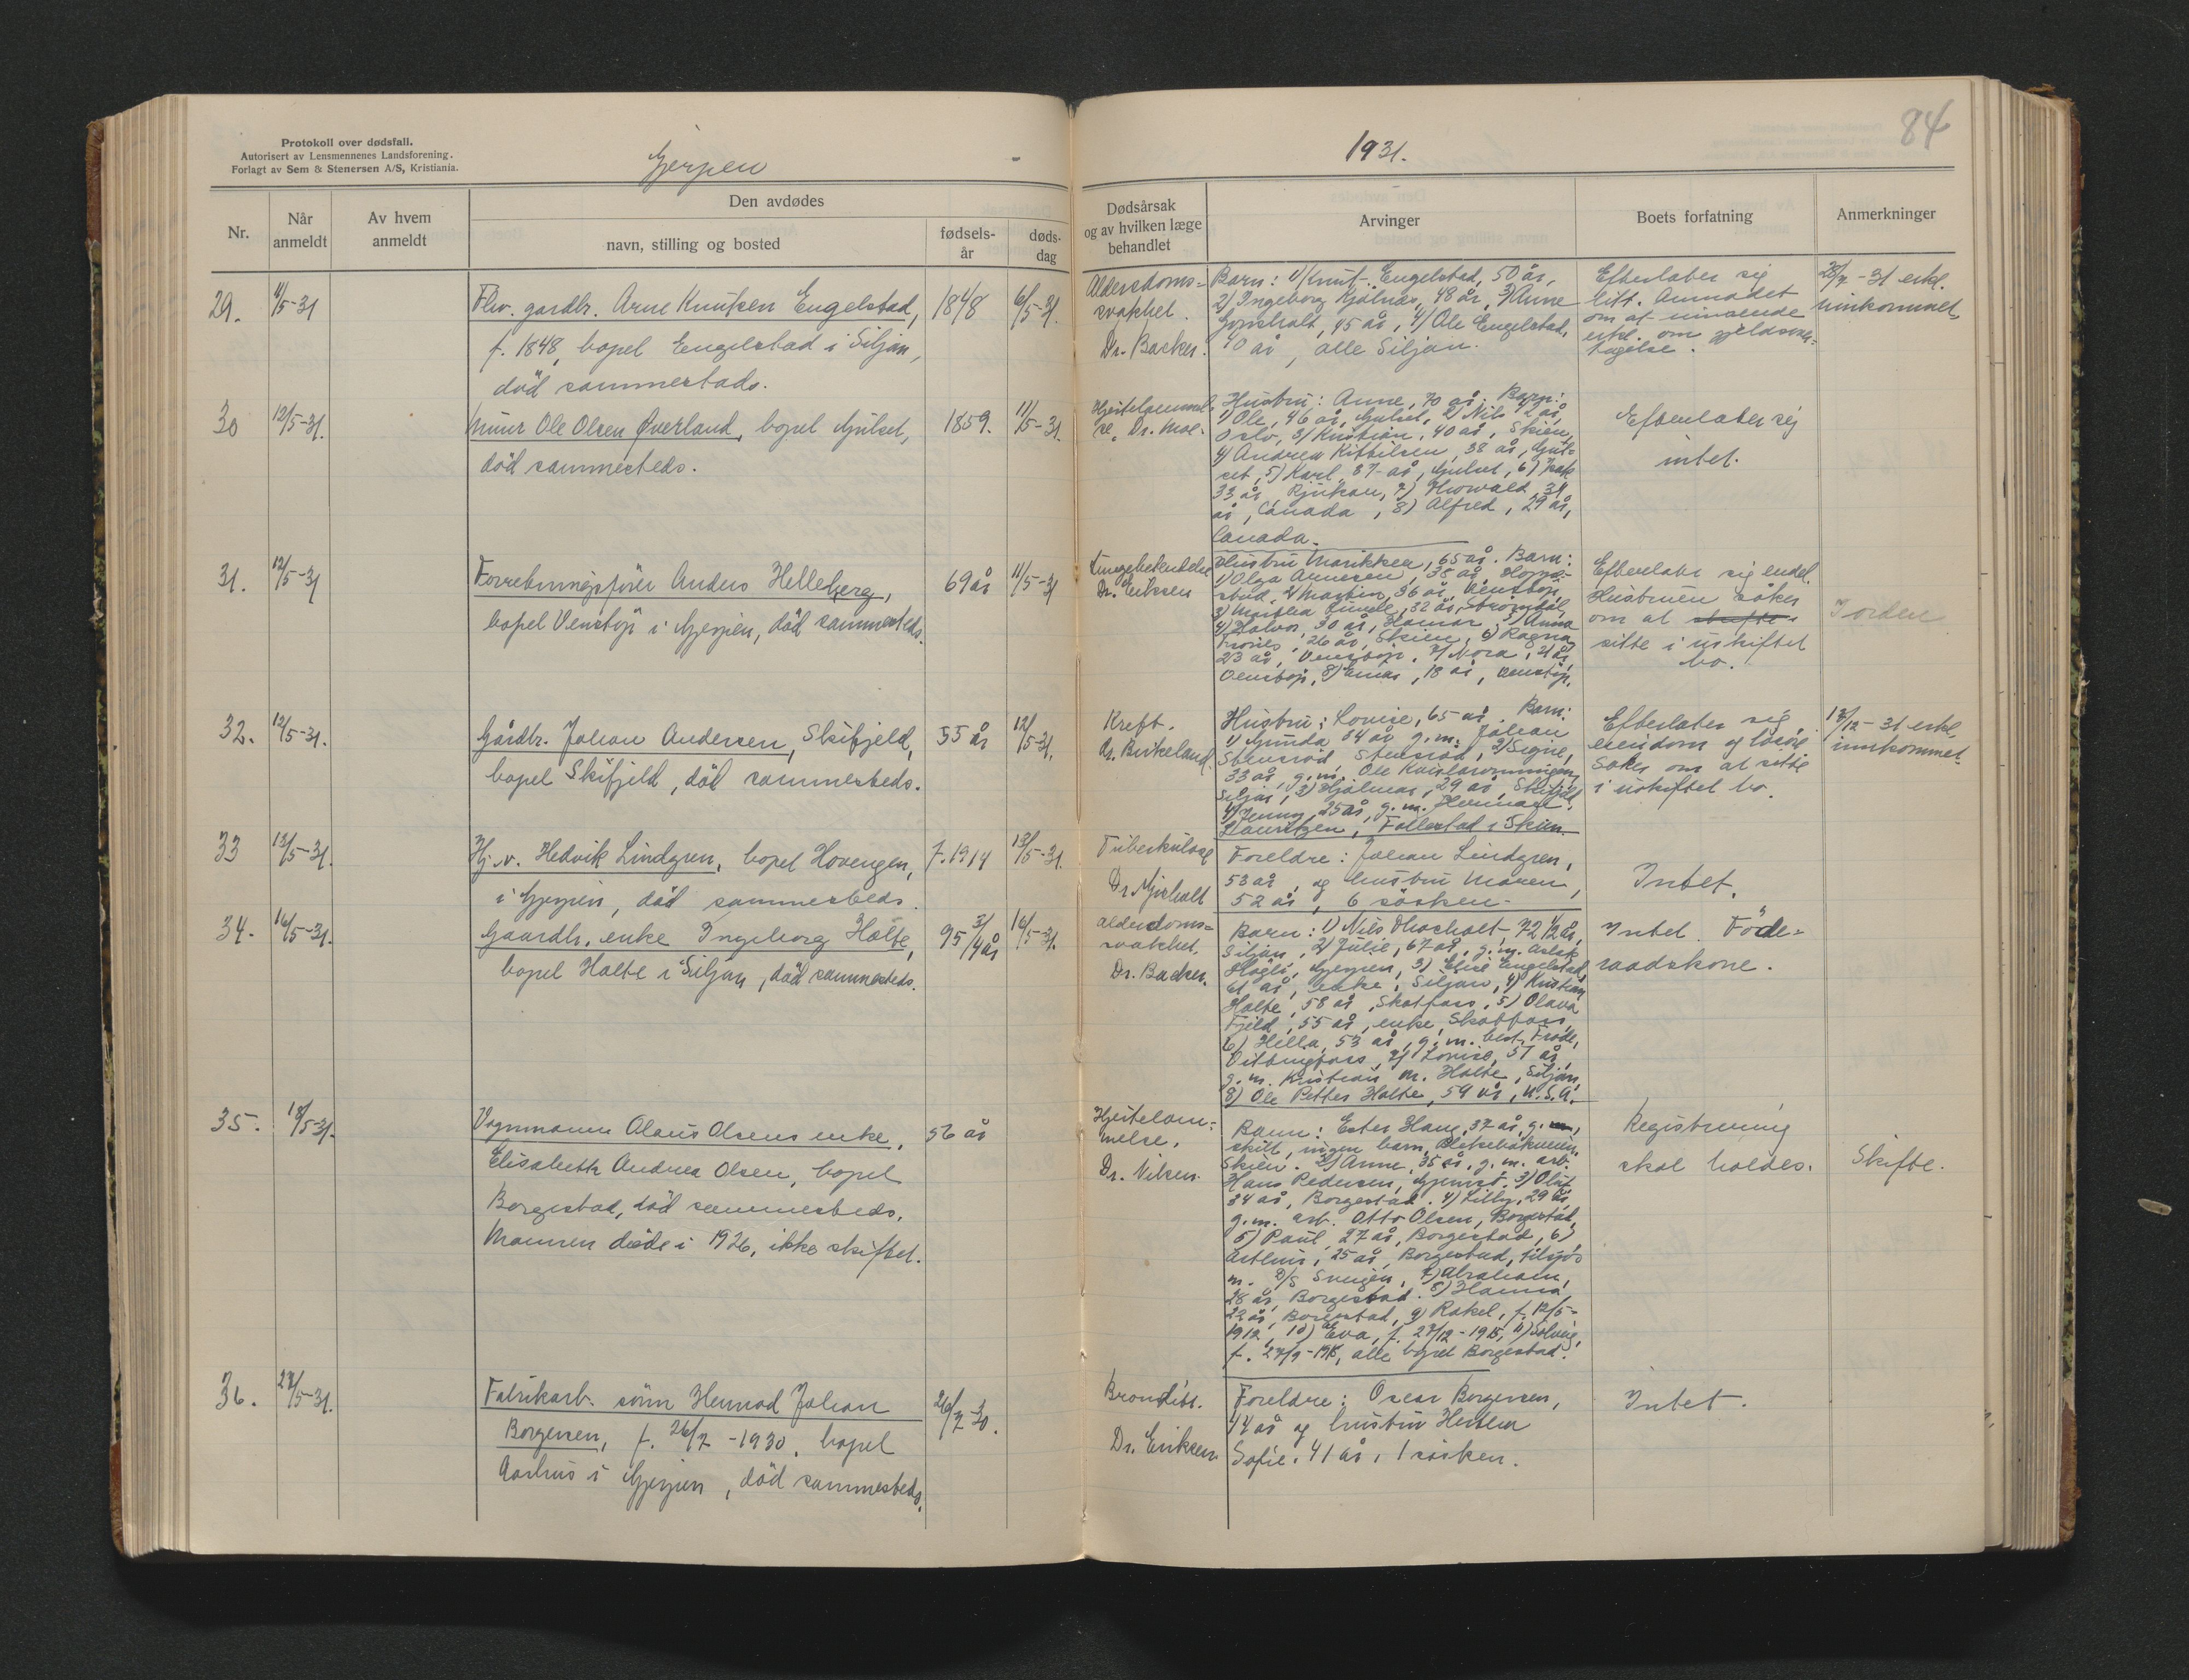 Protokoll over dødsfall.
Autorisert av Lensmennenes Landsforening.
Forlagt av Sem & Stenersen A/S, Kristiania.
Gjerpen
1931.
84
Nr.
Når anmeldt
Av hvem anmeldt
Den avdødes
navn, stilling og bosted
fødsels-år
døds-dag
Dødsårsak og av hvilken læge behandlet
Arvinger
Boets forfatning
Anmerkninger
29.
11/5-31
Flv. gardbr. Arne Knutsen Engelstad,
f. 1848, bopel Engelstad i Siljan,
död sammestads.
1848
6/5-31.
Aldersdoms-
svakhet.
Dr. Backer.
Barn: 1) Knut Engelstad, 50 år,
2) Ingeborg Kjølnæs, 48 år, 3) Anne
Gonsholt, 45 år, 4) Ole Engelstad,
40 år, alle Siljan.
Efterlater sig
litt. Anmodet
om at innsende
erkl. om gjeldsover-
tagelse.
28/7-31 erkl.
innkommet.
30
12/5-31.
Murer Ole Olsen Øverland, bopel Gulset,
död sammesteds.
1859.
11/5-31.
Hjertelammel-
se, Dr. Moe.
Hustru: Anne, 70 år. Barn:
1) Ole, 46 år, Gulset, 2) Nils 42 år,
Oslo, 3) Kristian, 40 år, Skien,
4) Andrea Kittilsen, 38 år, Gul-
set, 5) Karl, 37 år, Gulset, 6) Isak
33 år, Rjukan, 7) Thorvald, 31
år, Canada, 8) Alfred, 29 år,
Canada.
Efterlater sig
intet.
31.
12/5-31
Forretningsfører Anders Helleberg,
bopel Venstøp i Gjerpen, död sammesteds.
69 år
11/5-31
Lungebetendelse
Dr. Eriksen
Hustru Marikken, 65 år. Barn:
1) Olga Arnesen, 38 år,
2) Martin, 36 år, Venstøp,
3) 32 år, Strømdal,
4) Halvor, 30 år, Hamar, 5) Anna
26 år, Skien, 6) Ragna,
23 år, Venstøp, 7) Nora, 21 år,
Venstøp, 8) Einar, 18 år, Venstøp.
Efterlater sig endel.
Hustruen søker
om at skifte
sitte i uskiftet
bo.
Jorden
32.
12/5-31.
Gårdbr. Johan Andersen, Skifjeld,
bopel Skifjeld, död sammesteds.
55 år
12/5-31.
Kreft.
Dr. Birkeland.
Hustru: Lovise, 65 år. Barn:
1) Gunda 34 år g.m. Johan
Stensrød, Stensrød, 2) Signe,
33 år, g.m. Ole
Siljan, 3) Hjalmar, 29 år, Skifjeld,
4) Jenny, 25 år, g.m. Herman
Lauritzen, Follestad i Skien.
Efterlater sig
eiendom og løsøre.
Søker om at sitte
i uskiftet bo.
12/12-31 erkl.
innkommet.
33
13/5-31.
Hj.v. Hedvik Lindgren, bopel Hovengen,
i Gjerpen, död sammesteds.
f. 1914
13/5-31.
Tuberkulose
Dr. Mjelholt
Foreldre: Johan Lindgren,
53 år, og hustru Maren,
52 år, 6 søsken.
Intet.
34.
16/5-31.
Gaardbr. enke Ingeborg Holte,
bopel Holte i Siljan, död sammesteds.
95 3/4 år
16/5-31.
Alderdoms-
svakhet.
Dr. Backer.
Barn: 1) Nils Thorsholt, 72 1/2 år,
Siljan, 2) Julie, 67 år, g.m. Aslak
Hogli, Gjerpen, 3) Elise Engelstad,
61 år, enke, Siljan, 4) Kristian
Holte, 58 år, Skotfoss, 5) Olava
Fjeld, 55 år, enke, Skotfoss,
6) Hella, 53 år, g.m. best. Frode,
Vittingfoss, 7) Lovise, 51 år,
g.m. Kristian M. Holte, Siljan,
8) Ole Petter Holte, 59 år, U.S.A.
Intet. Föde-
raadskone.
35.
18/5-31.
Vognmann Olaus Olsens enke,
Elisabeth Andrea Olsen, bopel
Borgestad, död sammesteds.
Mannen døde i 1926, ikke skiftet.
56 år
Hjertelam-
melse.
Dr. Nilsen.
Barn: Ester Haug, 37 år, g.m.,
skilt, ingen barn,
Skien. 2) Anne, 35 år, g.m. arb.
Hans Pedersen, Gjemsø. 3) Olaf,
34 år, Borgestad. 4) Lilly, 29 år,
g.m. arb. Otto Olsen, Borgestad,
5) Paul, 27 år, Borgestad, 6)
Arthur, 25 år, Borgestad, tilsjøs
m. D/S 7) Abraham,
28 år, Borgestad. 8) Hanna,
22 år, Borgestad, 9) Rakel, f. 12/5-
1912, 10) Eva, f. 27/12-1915, 11) Solveig,
f. 27/9-1918, alle bopel Borgestad.
Registrering
skal holdes.
Skifte.
36.
27/5-31.
Fabrikarb. sønn Hermod Johan
Borgersen, f. 26/7-1930, bopel
Aarhus i Gjerpen, död sammesteds.
26/7-30.
Bronkitt.
Dr. Eriksen.
Foreldre: Oscar Borgersen,
44 år og hustru Hertha
Sofie. 41 år, 1 søsken.
Intet.